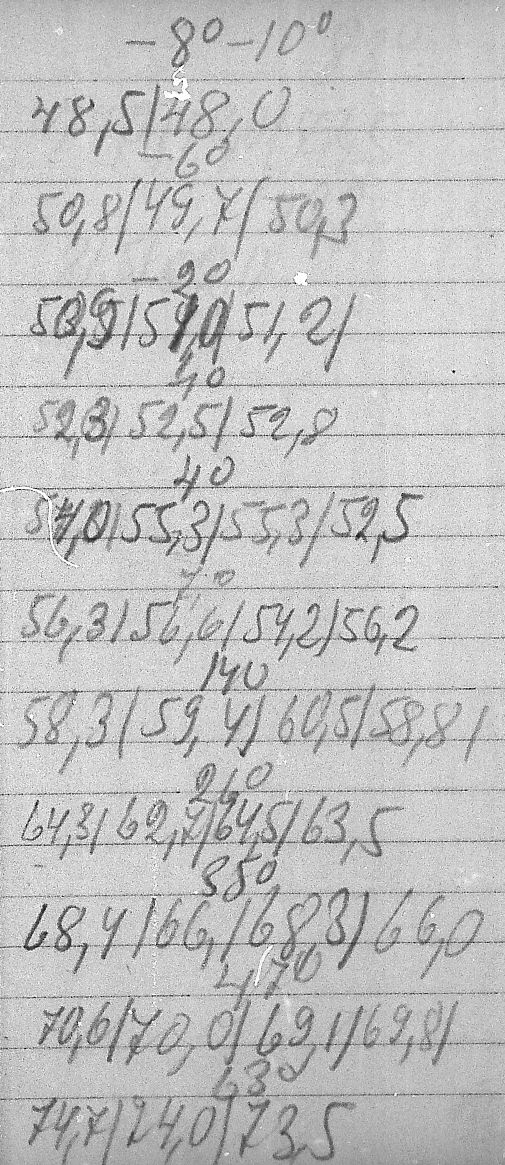 -8° -10°
48,5/48,0
-6°
50,8/49,7/50,3
-2°
50,9/51,0/51,2/
1°
52,3/52,5/52,8
4°
54,0/55,3/55,3/52,5
7°
56,3/56,6/54,2/56,2
14°
58,3/59,4/60,5/58,8/
26°
64,3/62,7/64,5/63,5
35°
68,4/66,/68,3/66,0
47°
70,6/70,0/69,1/69,8/
63°
74,7/74,0/73,5